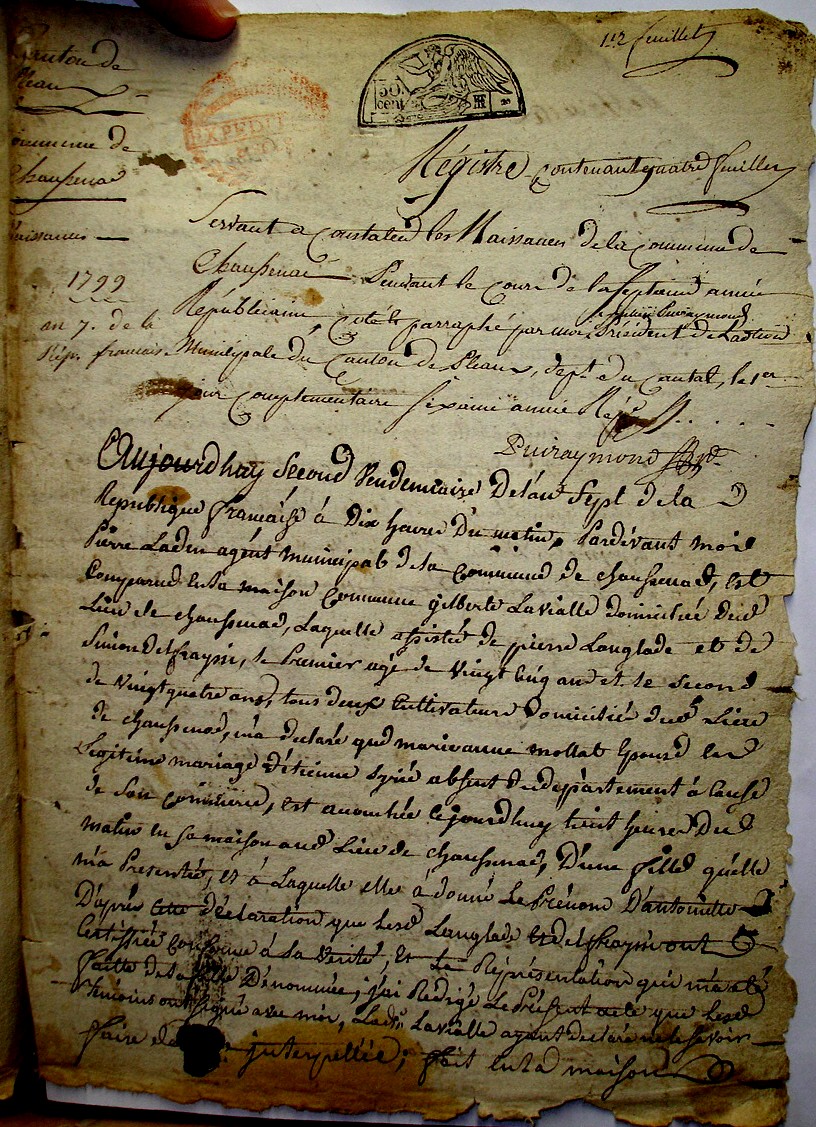 1er feuillet
50
cent
RF
Canton de
Pleaux
Commune de
Chaussenac
Naissances
1799
an 7. de la
Rép. française
Régistre contenant quatre feuilles
Servant a Constater les Naissances de la Commune de
Chaussenac Pendant le Cours de la Septieme année
Républicaine, coté et parraphé par moi Président de L'admon
Municipale du Canton de Pleaux, dept. du Cantal, le 1er
jour Complementaire Sixième année Rép.
Puiraymond
Aujourdhuy Second Vendemiaire De l'an Sept de la
Republique française à Dix heures Du matin, Pardevant moi
Pierre Laden agent municipal de la Commune de chaussenac, est
Comparue en la maison Commune gilberte Lavialle domiciliée dud
Lieu de chaussenac, Laquelle assistée de pierre Langlade et de
Simon delfraysi, le Premier agé de Vingt cinq ans et le Second
de Vingt quatre ans, tous deux Cultivateurs domiciliés dud Lieu
de chaussenac, m'a declaré que marieanne mollat Epouse en
Legitime mariage d'étienne absent du departement à cause
de Son Commerce, est accouchée cejourdhuy huit heures du
matin en sa maison aud Lieu de chaussenac, D'une fille qu'elle
m'a Presentée, et à Laquelle elle à donné Le Prénom D'antoinette
D'après Cette Déclaration que Lesd Langlade et delfraysi ont
Certiffiée Conforme à la Verité, et La Représentation qui m'a été
faitte de la fille Dénommée, j'ai Rédigé Le Présent acte que Lesd
Temoins ont Signé avec moi, Lade Lavialle ayant declaré ne le Savoir
faire de interpellée; fait en la maison